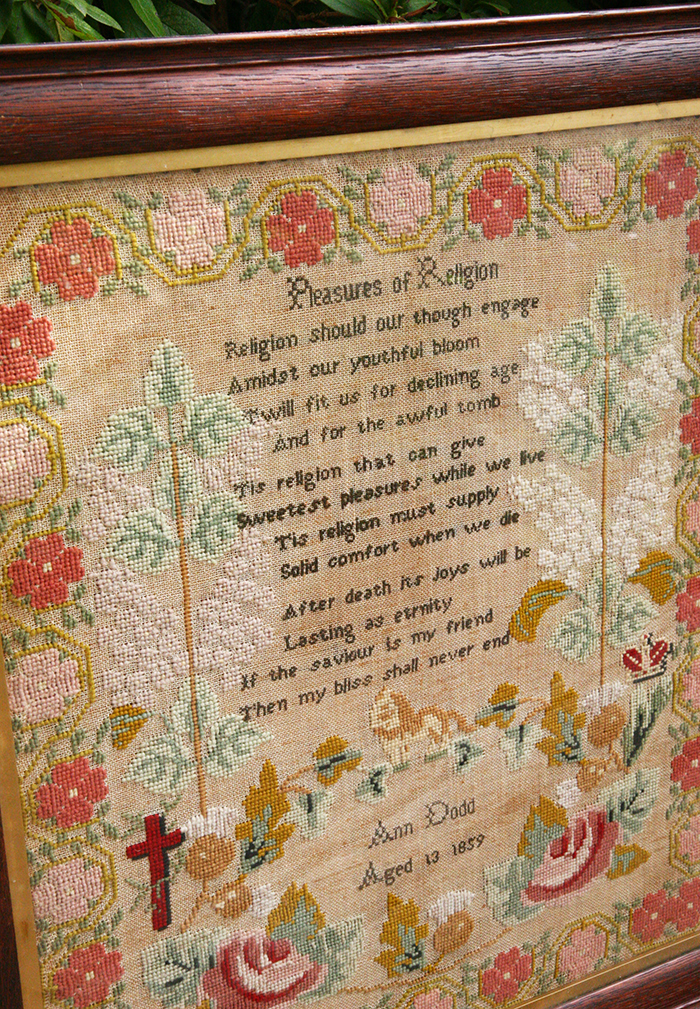 Pleasures of Religion
Religion should our though engage
Amidst our youthful bloom
Twill fit us for declining age
And for the awful tomb
Tis religion that can give
Sweetest pleasures while we live
Tis religion must supply
Solid comfort when we die
After death its Joys will be
Lasting as etrnity
If the saviour is my friend
Then my bliss shall never end
Ann Dodd
Aged 13 1859